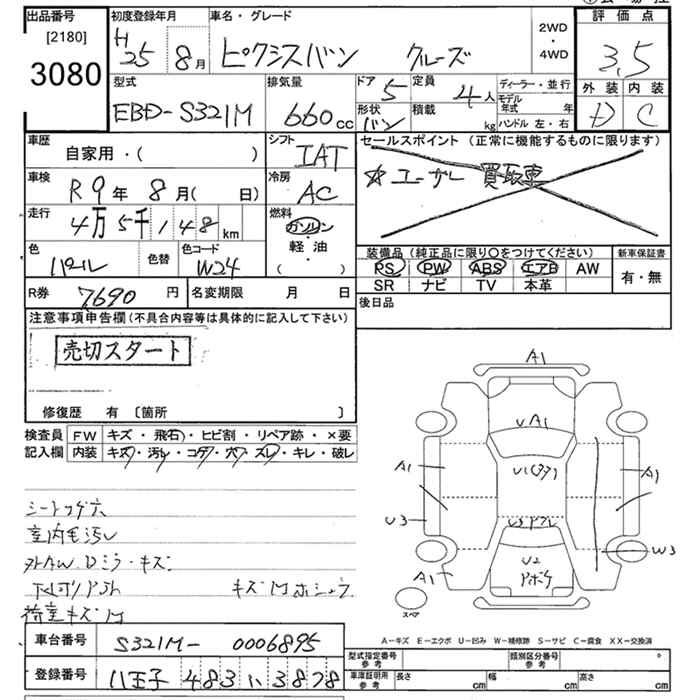 出品番号 初度登録年月 車名・グレード 評価点
[2180]
3080
H25 8月 ピクシスバン クルーズ 2WD・4WD 3.5
型式 排気量 ドア 5 定員 4人 ディーラー・並行 外装 内装
EBD-S321M 660cc 形状 バン 積載 kg モデル年式 年 ハンドル 左・右 D C
車歴 シフト セールスポイント (正常に機能するものに限ります)
自家用・( ) IAT
☆ユーザー買取車
車検 R9年 8月( 日) 冷房 AC
走行 4万5千148km 燃料 ガソリン・軽油 ( )
色 パール 色替 色コード W24
装備品 (純正品に限り○をつけてください) 新車保証書
PS PW ABS エアB AW 有・無
SR ナビ TV 本革
R券 7690円 名変期限 月 日 後日品
注意事項申告欄 (不具合内容等は具体的に記入して下さい)
売切スタート
修復歴 有 〔箇所 〕
検査員 FW キズ・飛石・ヒビ割・リペア跡・×要
記入欄 内装 キズ・汚レ・コゲ・穴・スレ・キレ・破レ
シートコゲ穴
室内毛汚レ
外AW.Dミラ・キズ
キズMホシュウ
荷室キズM
A1
UA1
A1
A1
U3
W3
U2
A1
スペア
A-キズ E-エクボ U-凹み W-補修跡 S-サビ C-腐食 XX-交換済
車台番号 S321M- 0006895
登録番号 八王子 483 い 3878
型式指定番号 参考 類別区分番号 参考
車庫証明用 参考 長さ cm 幅 cm 高さ cm